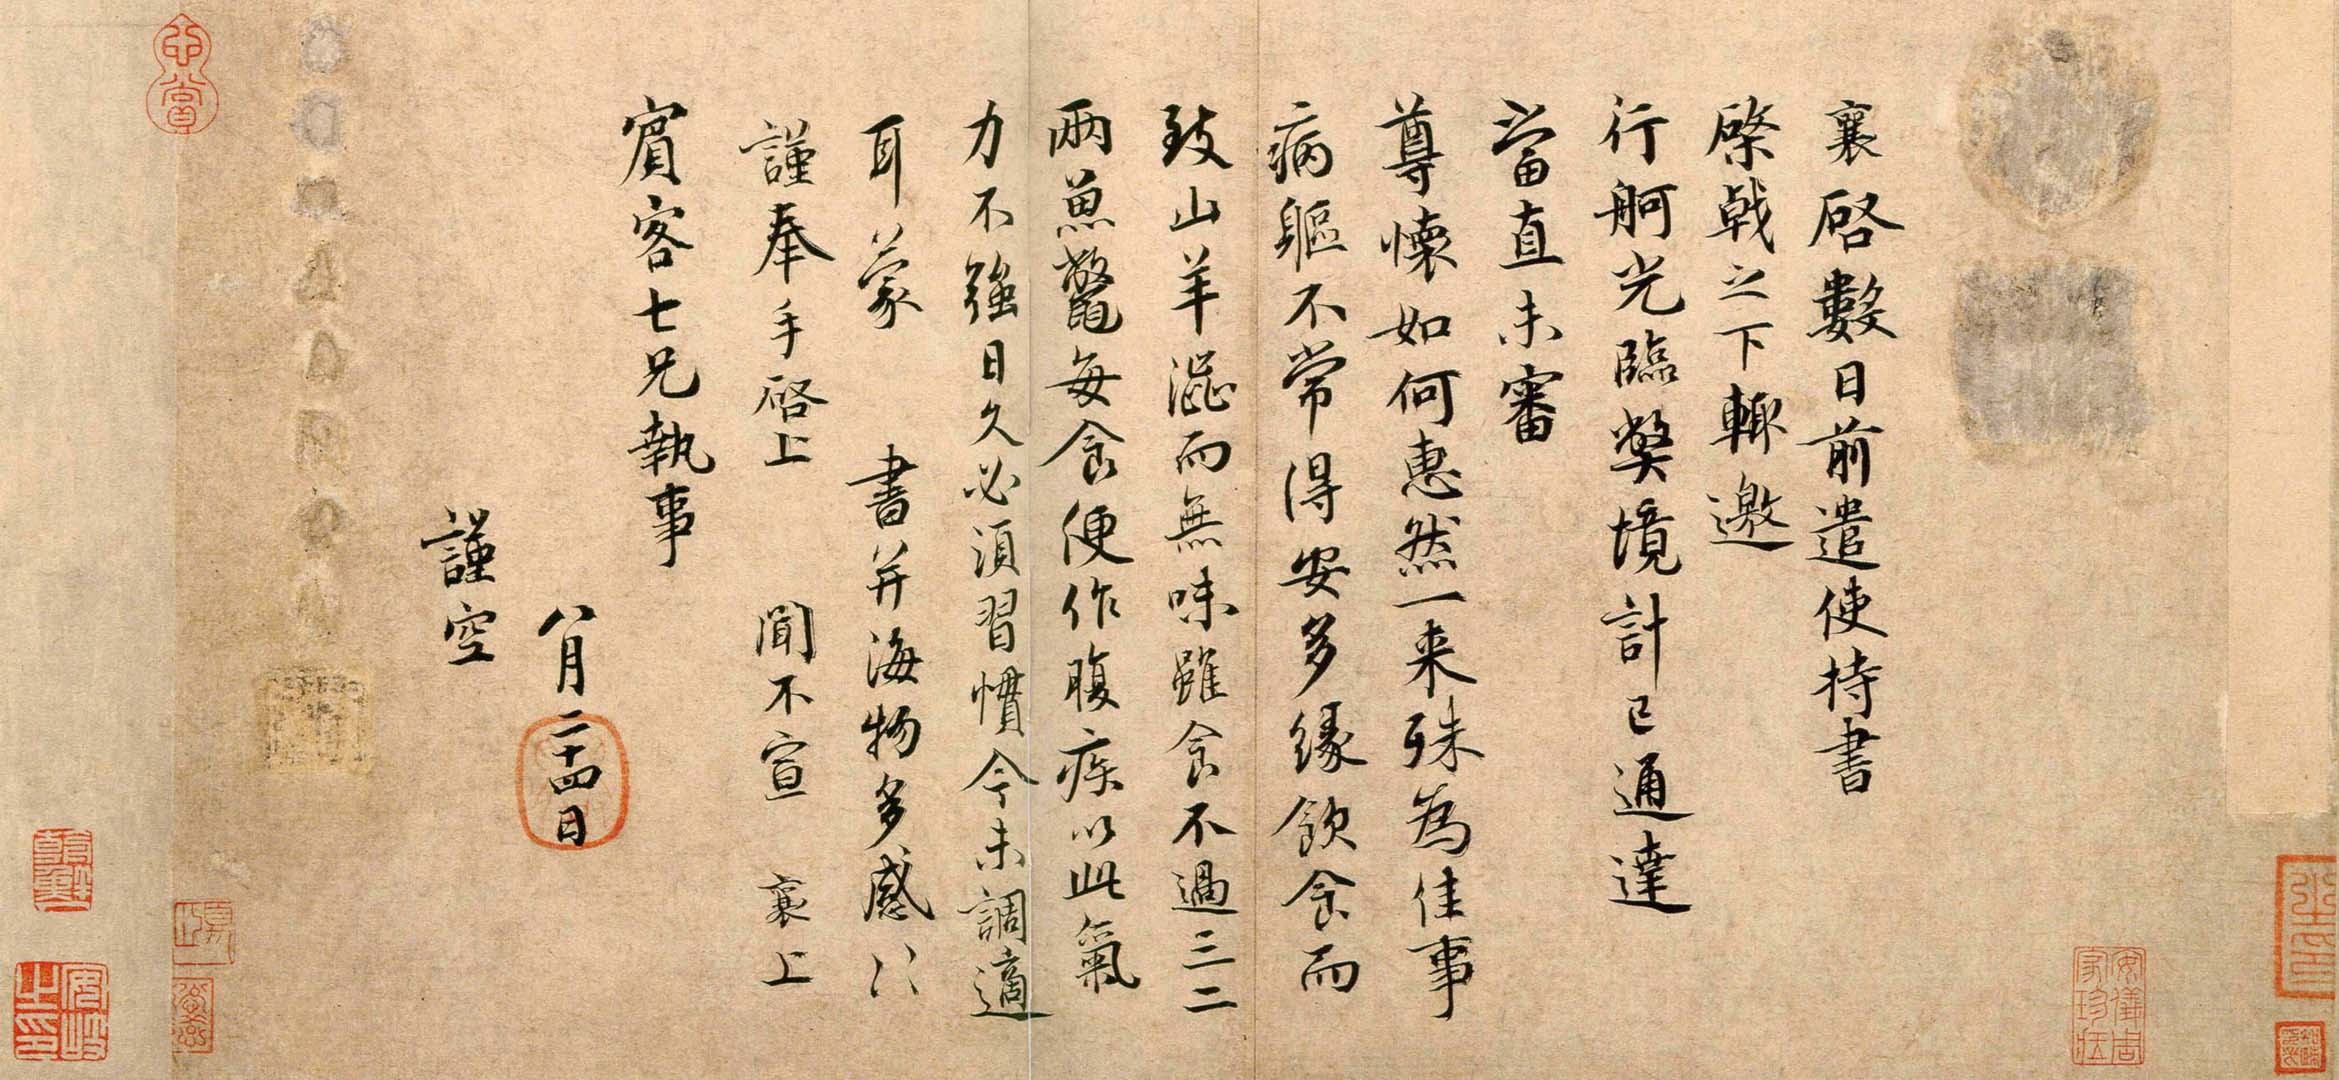 襄啓數日前遣使持書
棨戟之下輙邀
行舸光臨弊境計已通達
當直未審
尊懷如何惠然一来殊為佳事
病軀不常得安多緣飲食而
致山羊澁而無味雖食不過三二
兩魚鼈每食便作腹疾以此氣
力不強日久必須習慣今未調適
耳蒙 書并海物多感〻
謹奉手啓上 聞不宣 襄上
賔客七兄執事
八月二十四日
謹空
安儀周家珍藏